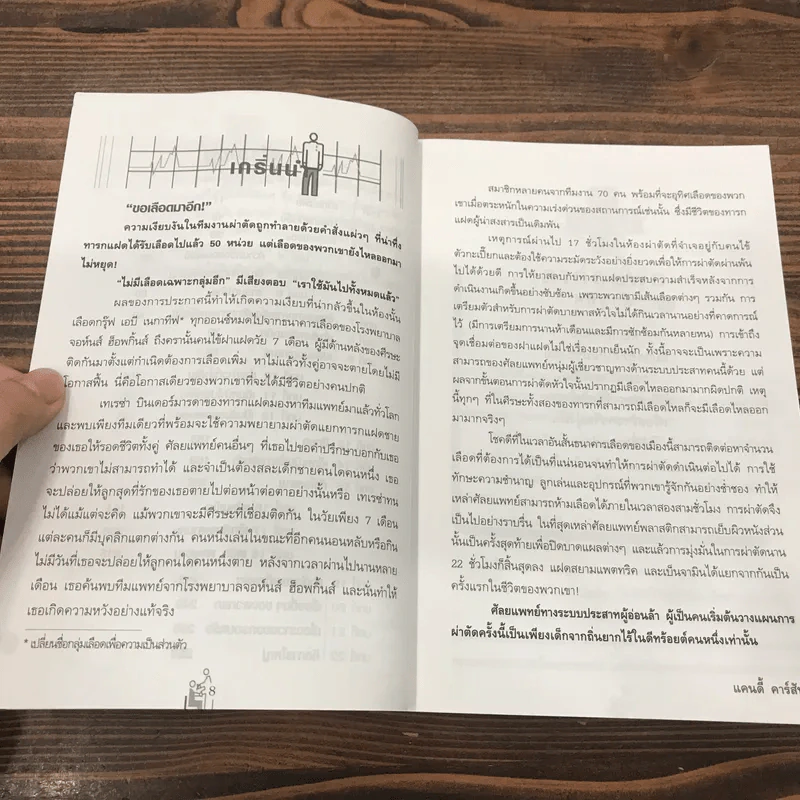 เกริ่นนำ
“ขอเลือดมาอีก!”
ความเงียบงันในทีมงานผ่าตัดถูกทำลายด้วยคำสั่งแผ่วๆ ที่น่าทึ่ง
ทารกแฝดได้รับเลือดไปแล้ว 50 หน่วย แต่เลือดของพวกเขายังไหลออกมา
ไม่หยุด!
“ไม่มีเลือดเฉพาะกลุ่มอีก” มีเสียงตอบ “เราใช้มันไปทั้งหมดแล้ว”
ผลของการประกาศนี้ทำให้เกิดความเงียบที่น่ากลัวขึ้นในห้องนั้น
เลือดกรุ๊ฟ เอบี เนกาทีฟ* ทุกออนซ์หมดไปจากธนาคารเลือดของโรงพยาบาล
จอห์นส์ ฮ็อพกิ้นส์ ถึงครานั้นคนไข้ฝาแฝดวัย 7 เดือน ผู้มีด้านหลังของศีรษะ
ติดกันมาตั้งแต่กำเนิดต้องการเลือดเพิ่ม หาไม่แล้วทั้งคู่อาจจะตายโดยไม่มี
โอกาสฟื้น นี่คือโอกาสเดียวของพวกเขาที่จะได้มีชีวิตอย่างคนปกติ
เทเรซ่า บินเตอร์มารดาของทารกแฝดมองหาทีมแพทย์มาแล้วทั่วโลก
และพบเพียงทีมเดียวที่พร้อมจะใช้ความพยายามผ่าตัดแยกทารกแฝดชาย
ของเธอให้รอดชีวิตทั้งคู่ ศัลยแพทย์คนอื่นๆ ที่เธอไปขอคำปรึกษาบอกกับเธอ
ว่าพวกเขาไม่สามารถทำได้ และจำเป็นต้องสละเด็กชายคนใดคนหนึ่ง เธอ
จะปล่อยให้ลูกสุดที่รักของเธอตายไปต่อหน้าต่อตาอย่างนั้นหรือ เทเรซ่าทน
ไม่ได้แม้แต่จะคิด แม้พวกเขาจะมีศีรษะที่เชื่อมติดกัน ในวัยเพียง 7 เดือน
แต่ละคนก็มีบุคลิกแตกต่างกัน คนหนึ่งเล่นในขณะที่อีกคนนอนหลับหรือกิน
ไม่มีวันที่เธอจะปล่อยให้ลูกคนใดคนหนึ่งตาย หลังจากเวลาผ่านไปนานหลาย
เดือน เธอค้นพบทีมแพทย์จากโรงพยาบาลจอห์นส์ ฮ็อพกิ้นส์ และนั่นทำให้
เธอเกิดความหวังอย่างแท้จริง
* เปลี่ยนชื่อกลุ่มเลือดเพื่อความเป็นส่วนตัว
8
สมาชิกหลายคนจากทีมงาน 70 คน พร้อมที่จะอุทิศเลือดของพวก
เขาเมื่อตระหนักในความเร่งด่วนของสถานการณ์เช่นนั้น ซึ่งมีชีวิตของทารก
แฝดผู้น่าสงสารเป็นเดิมพัน
เหตุการณ์ผ่านไป 17 ชั่วโมงในห้องผ่าตัดที่จำเจอยู่กับคนไข้
ตัวกะเปี๊ยกและต้องใช้ความระมัดระวังอย่างยิ่งยวดเพื่อให้การผ่าตัดผ่านพ้น
ไปได้ด้วยดี การให้ยาสลบกับทารกแฝดประสบความสำเร็จหลังจากการ
ดำเนินงานเกิดขึ้นอย่างซับซ้อน เพราะพวกเขามีเส้นเลือดต่างๆ รวมกัน การ
เตรียมตัวสำหรับการผ่าตัดบายพาสหัวใจไม่ได้กินเวลานานอย่างที่คาดการณ์
ไว้ (มีการเตรียมการนานห้าเดือนและมีการซักซ้อมกันหลายหน) การเข้าถึง
จุดเชื่อมต่อของฝาแฝดไม่ใช่เรื่องยากเย็นนัก ทั้งนี้อาจจะเป็นเพราะความ
สามารถของศัลยแพทย์หนุ่มผู้เชี่ยวชาญทางด้านระบบประสาทคนนี้ด้วย แต่
ผลจากขั้นตอนการผ่าตัดหัวใจนั้นปรากฏมีเลือดไหลออกมามากผิดปกติ เหตุ
นี้ทุกๆ ที่ในศีรษะทั้งสองของทารกที่สามารถมีเลือดไหลก็จะมีเลือดไหลออก
มามากจริงๆ
โชคดีที่ในเวลาอันสั้นธนาคารเลือดของเมืองนี้สามารถติดต่อหาจำนวน
เลือดที่ต้องการได้เป็นที่แน่นอนจนทำให้การผ่าตัดดำเนินต่อไปได้ การใช้
ทักษะความชำนาญ ลูกเล่นและอุปกรณ์ที่พวกเขารู้จักกันอย่างช่ำชอง ทำให้
เหล่าศัลยแพทย์สามารถห้ามเลือดได้ภายในเวลาสองสามชั่วโมง การผ่าตัดจึง
เป็นไปอย่างราบรื่น ในที่สุดเหล่าศัลยแพทย์พลาสติกสามารถเย็บผิวหนังส่วน
นั้นเป็นครั้งสุดท้ายเพื่อปิดบาดแผลต่างๆ และแล้วการมุ่งมั่นในการผ่าตัดนาน
22 ชั่วโมงก็สิ้นสุดลง แฝดสยามแพตทริค และเบ็นจามินได้แยกจากกันเป็น
ครั้งแรกในชีวิตของพวกเขา!
ศัลยแพทย์ทางระบบประสาทผู้อ่อนล้า ผู้เป็นคนเริ่มต้นวางแผนการ
ผ่าตัดครั้งนี้เป็นเพียงเด็กจากถิ่นยากไร้ในดีทร้อยต์คนหนึ่งเท่านั้น
แคนดี้ คาร์สัน